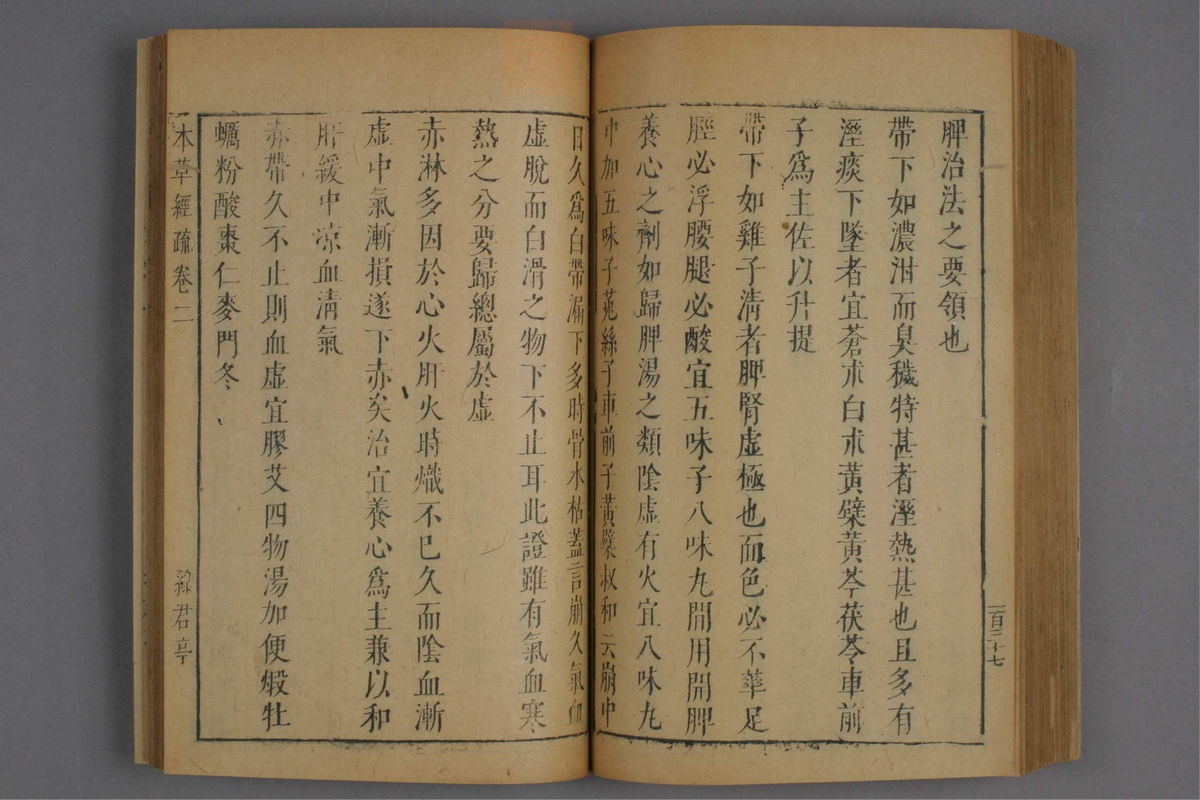 脾治法之要領也
帶下如濃泔而臭穢特甚者溼熱甚也且多有
溼痰下墜者宜蒼朮白朮黃蘗黃芩茯苓車前
子爲主佐以升提
帶下如雞子淸者脾腎虛極也面色必不華足
脛必浮腰腿必酸宜五味子八味丸間用開脾
養心之劑如歸脾湯之類陰虛有火宜八味丸
中加五味子菟絲子車前子黃蘗叔和云崩中
日久爲白帶漏下多時骨水枯蓋言崩久氣血
虛脫而白滑之物下不止耳此證雖有氣血寒
熱之分要歸總屬於虛
赤淋多因於心火肝火時熾不已久而陰血漸
虛中氣漸損遂下赤矣治宜養心爲主兼以和
肝緩中凉血淸氣
赤帶久不止則血虛宜膠艾四物湯加便煅牡
蠣粉酸棗仁麥門冬
本草經疏卷二
綠君亭
一百二十七